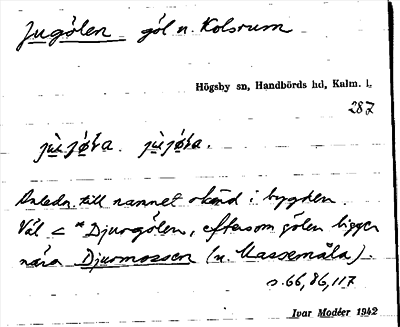 Jugölen göl n. Kolsrum
Högsby sn, Handbörds hd, Kalm. l.
287
Anledn. till namnet okänd i bygden.
Väl < *Djurgölen, eftersom gölen ligger
nära Djurmossen (n. Massemåla).
s. 66, 86, 117
Ivar Modéer 1942